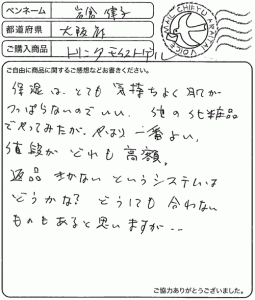 ペンネーム 岩倉 律子
都道府県 大阪府
ご購入商品 トリニティーモイストゲル
ご自由に商品に関するご感想などお書きください。
保湿は、とても 気持ちよく 肌が
つっぱらないので いい。 他の化粧品
でやってみたが、やはり 一番よい。
値段が どれも 高額。
返品 きかない というシステムは
どうかな? どうしても 合わない
ものもあると思いますが…
ご協力ありがとうございました。